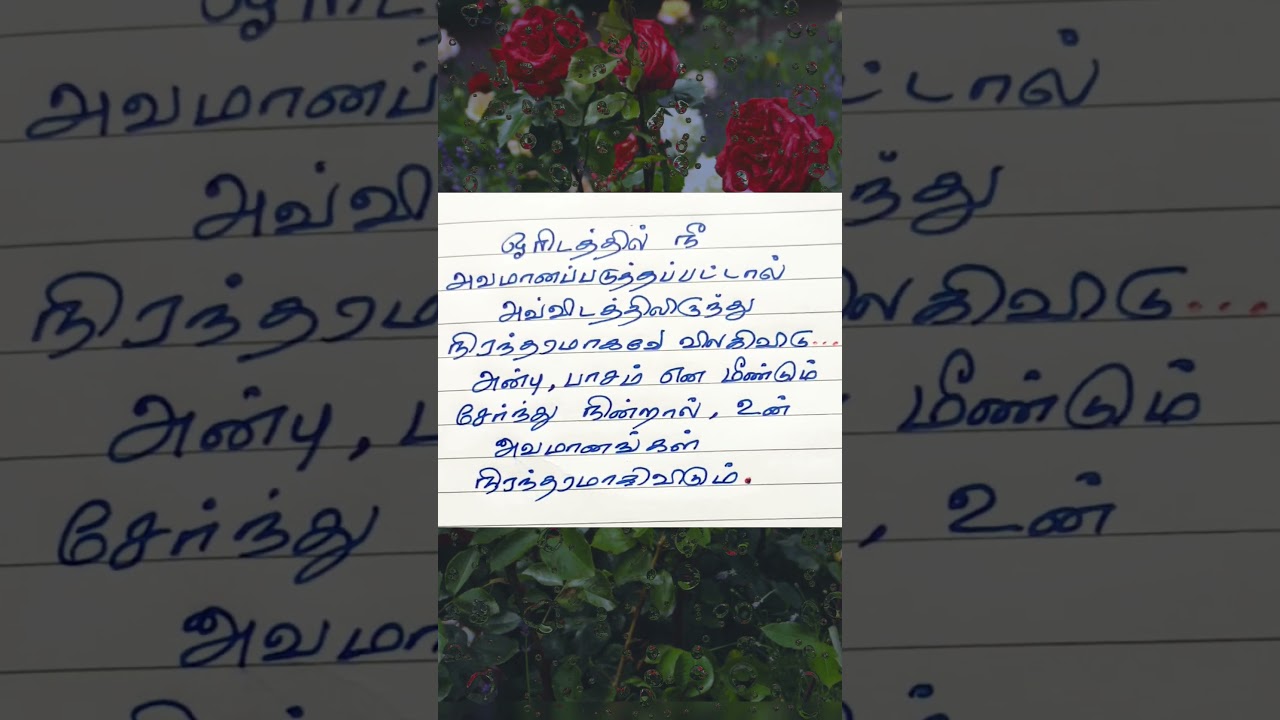 ஓரிடத்தில் நீ
அவமானப்படுத்தப்பட்டால்
அவ்விடத்திலிருந்து
நிரந்தரமாகவே விலகிவிடு...
அன்பு, பாசம் என மீண்டும்
சேர்ந்து நின்றால், உன்
அவமானங்கள்
நிரந்தரமாகிவிடும்.